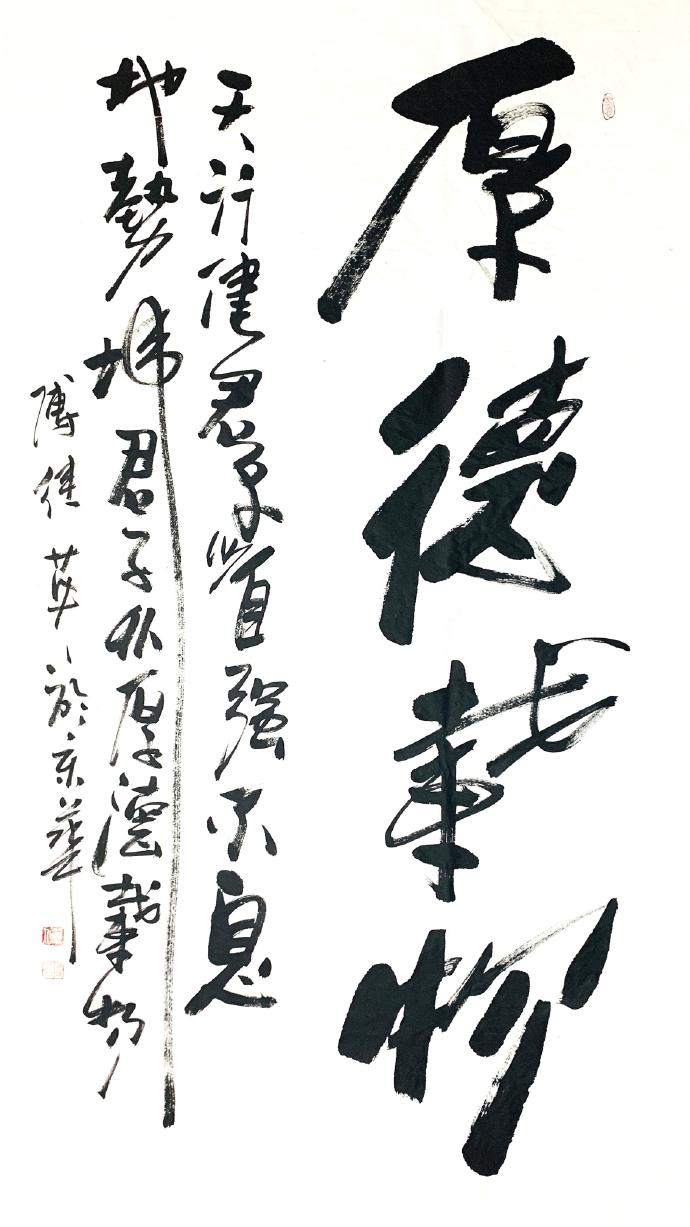 厚德載物
天行健君子以自强不息
地勢坤君子以厚德載物
傅佳華於京華